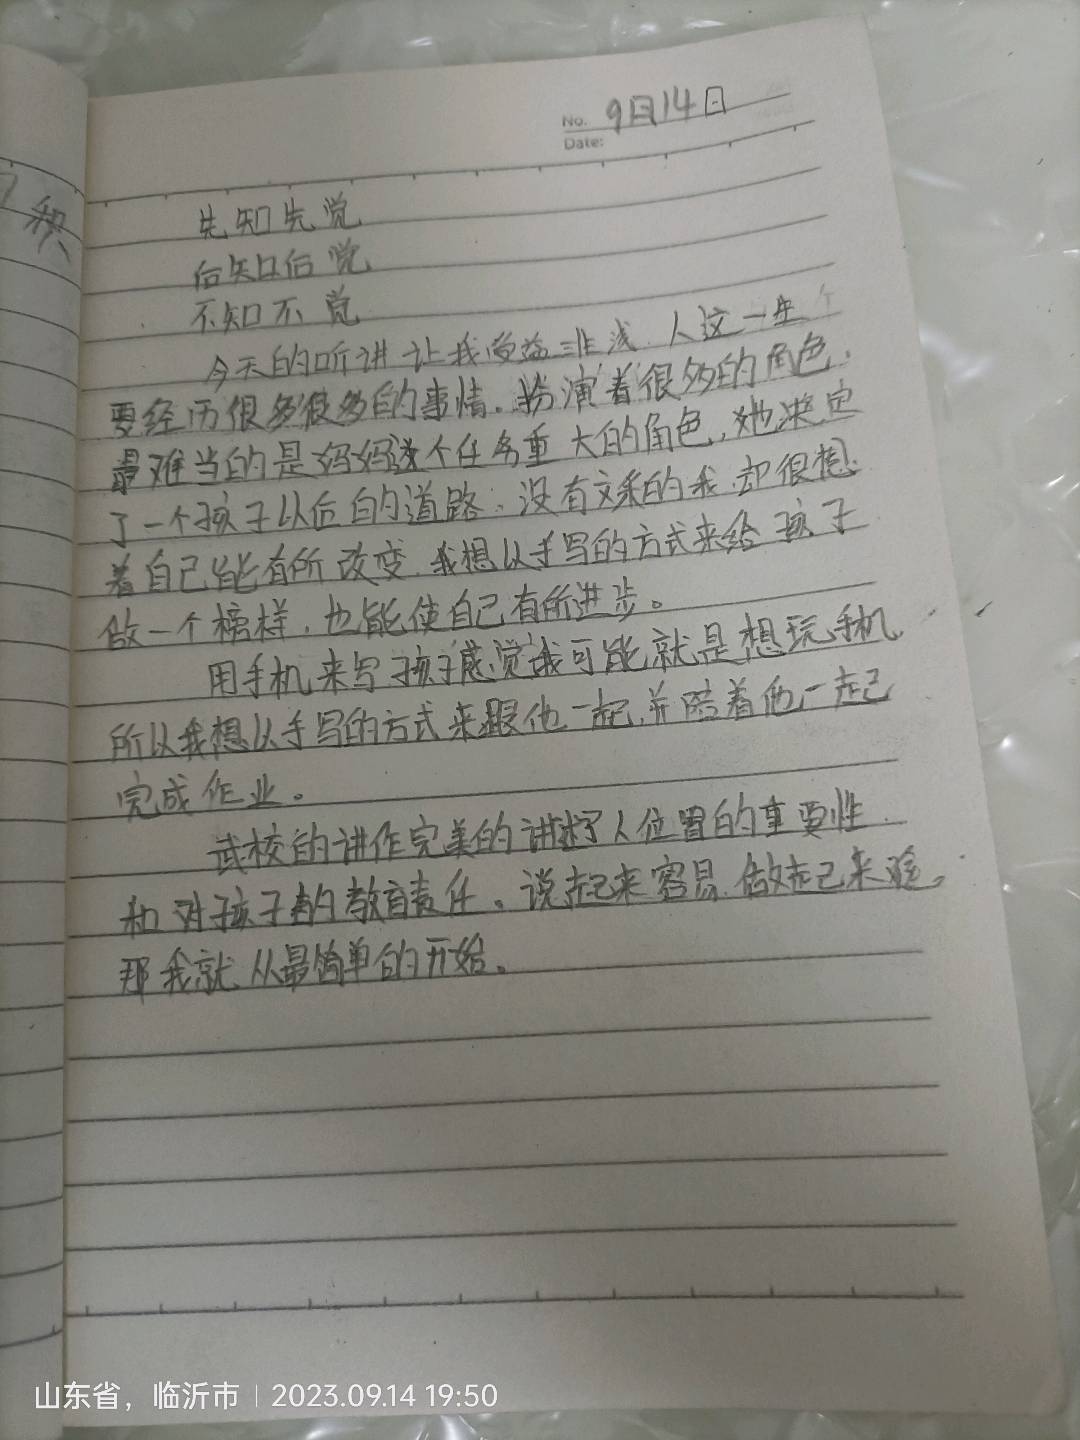 No. 9月14日
Date:
积
先知先觉
后知后觉
不知不觉
今天的听讲让我受益非浅.人这一生个
要经历很多很多的事情.扮演着很多的角色.
最难当的是妈妈这个任务重大的角色,她决定
了一个孩子以后的道路.没有文采的我却很想
着自己能有所改变.我想以手写的方式来给孩子
做一个榜样.也能使自己有所进步。
用手机来写孩子感觉我可能就是想玩手机.
所以我想以手写的方式来跟他一起,并陪着他一起
完成作业。
武校的讲作完美的讲了人位置的重要性.
和对孩子的教育责任。说起来容易.做起己来难。
那我就从最简单的开始。
山东省，临沂市 | 2023.09.14 19:50